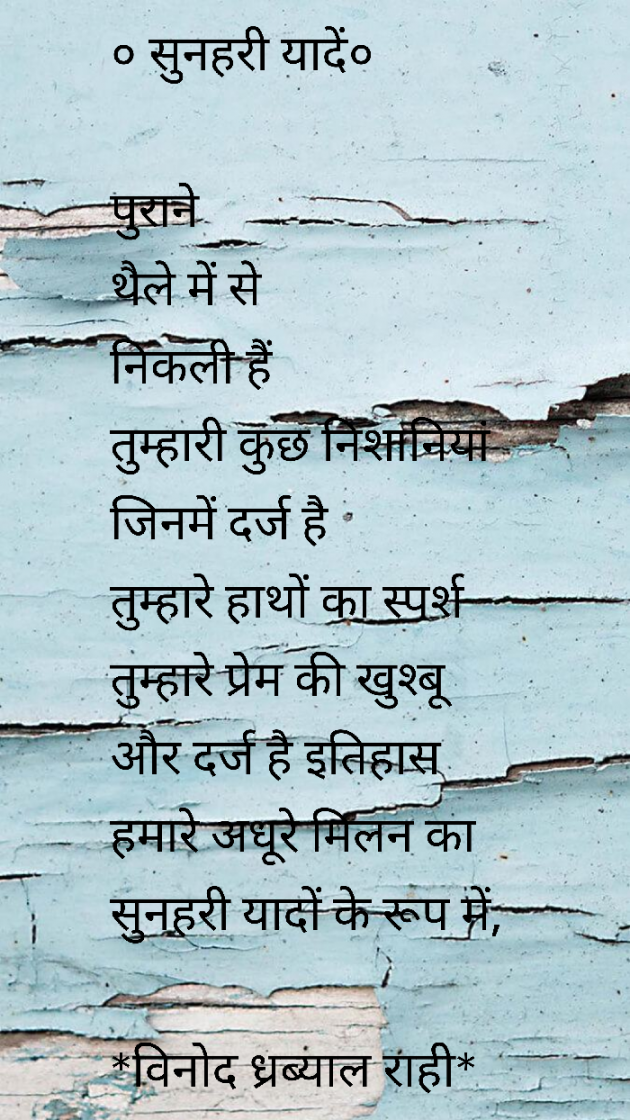 ० सुनहरी यादें०
पुराने
थैले में से
निकली हैं
तुम्हारी कुछ निशानियां
जिनमें दर्ज है
तुम्हारे हाथों का स्पर्श
तुम्हारे प्रेम की खुश्बू
और दर्ज है इतिहास
हमारे अधूरे मिलन का
सुनहरी यादों के रूप में,
*विनोद ध्रब्याल राही*